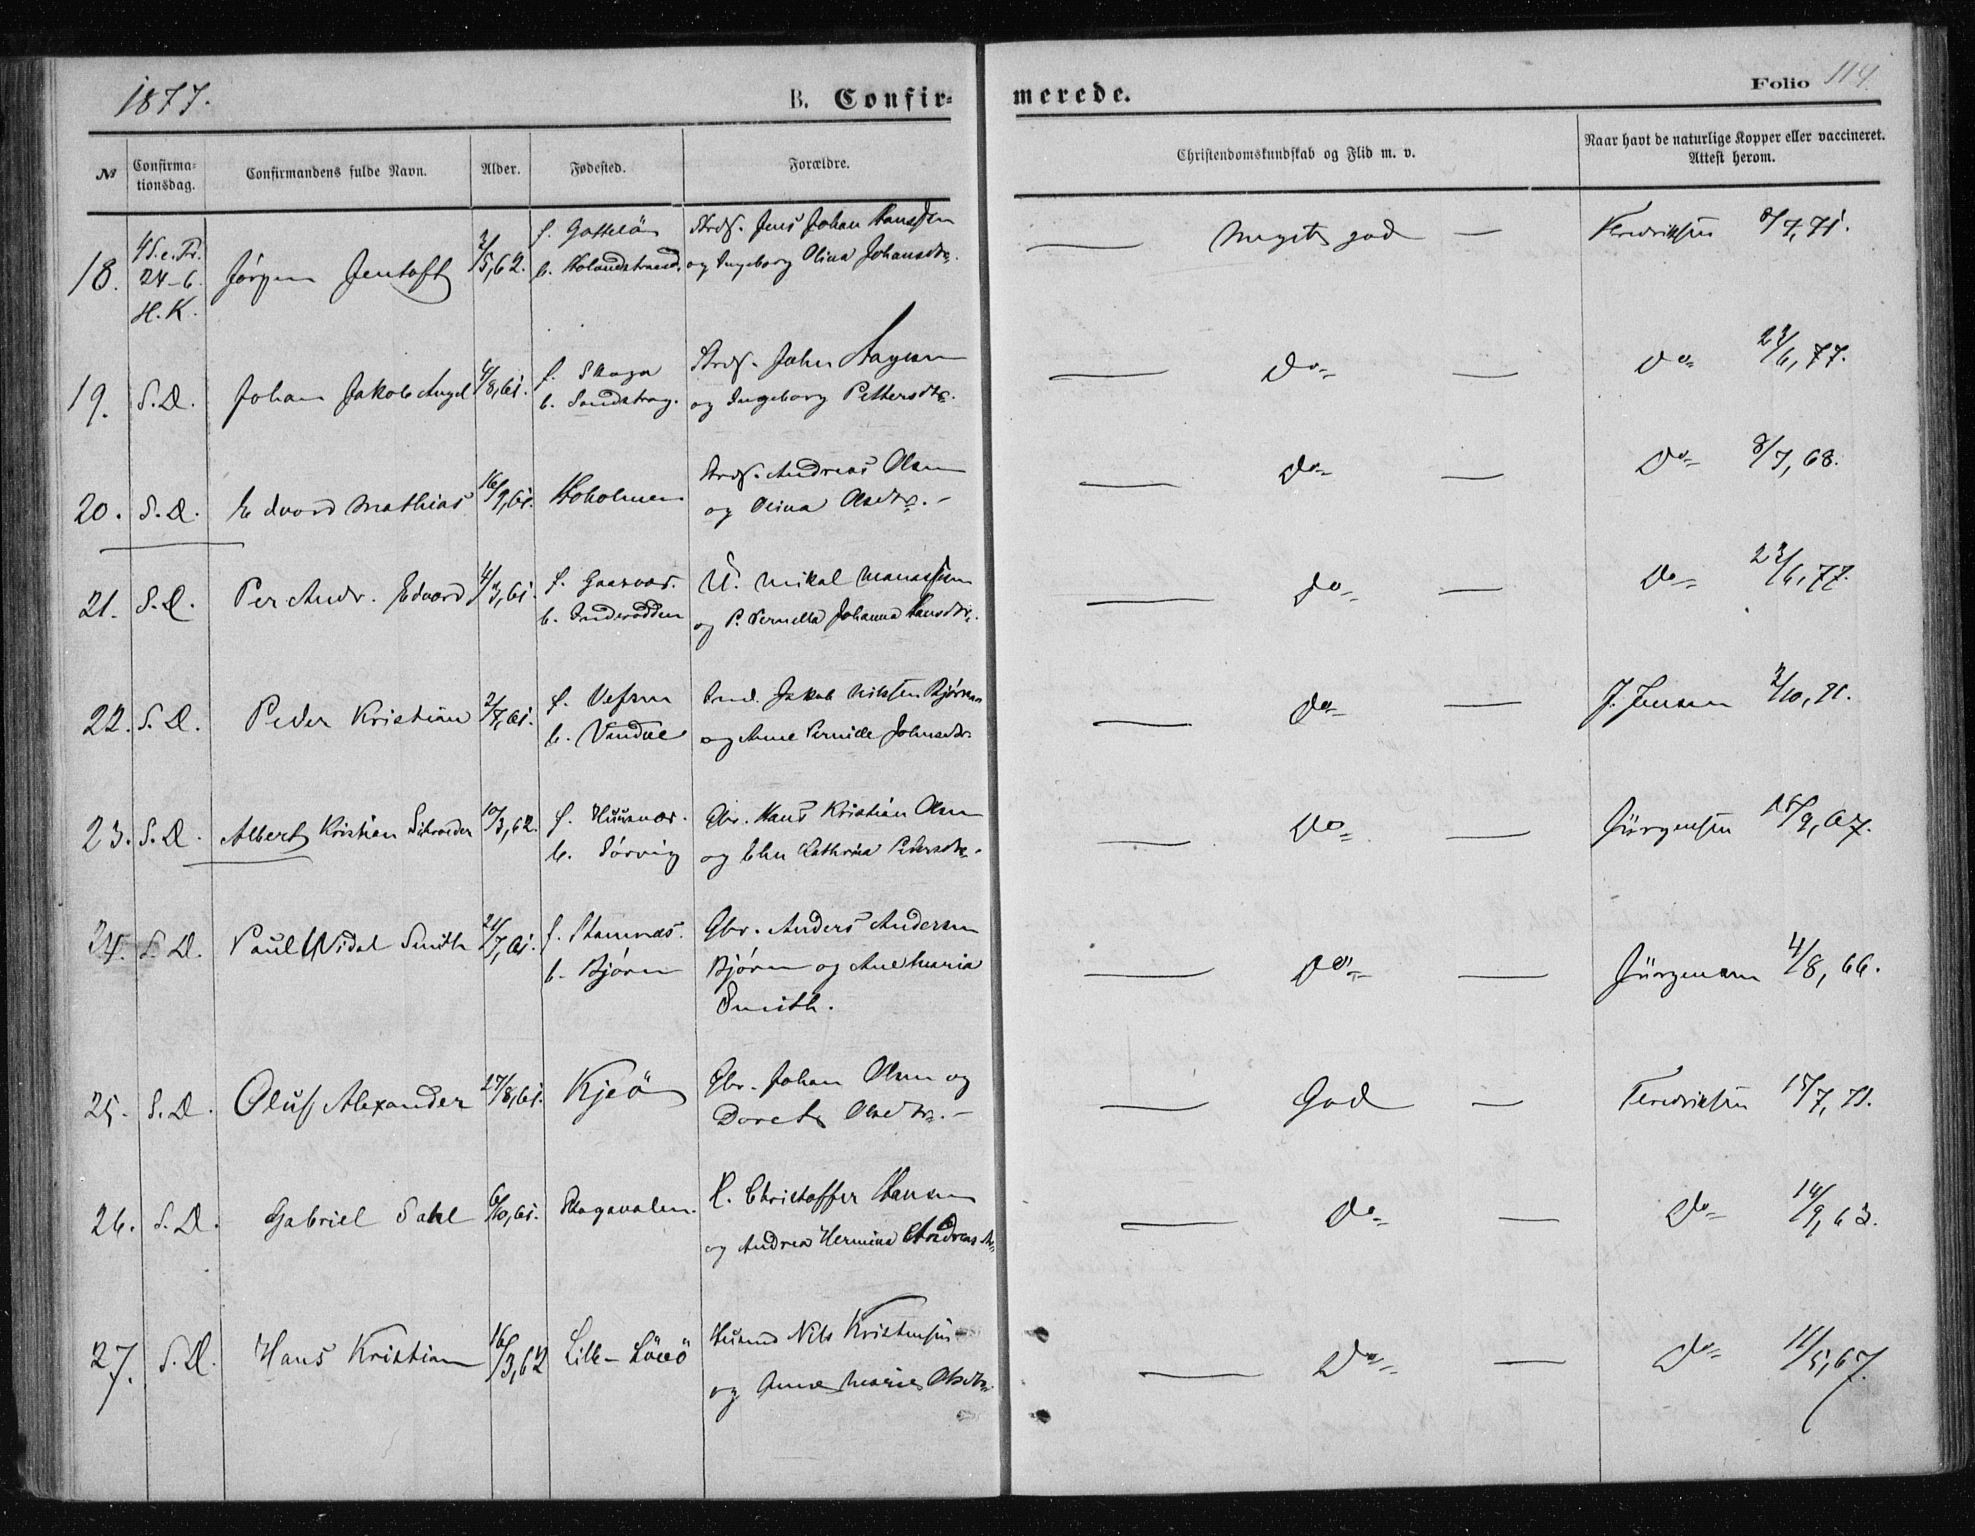 1877.
B. Confir-
merede.
Folio 114.
№
Confirma-
tionsdag.
Confirmandens fulde Navn.
Alder.
Fødested.
Forældre.
Christendomskundskab og Flid m. v.
Naar havt de naturlige Kopper eller vaccineret.
Attest herom.
18.
4 S. e. Tr.
24-6
H. K.
Jørgen Jentoft
2/5, 62.
f.
b.
Strds. Jens Johan Hanssen
og Ingeborg Olina Johansdtr.
— Meget god —
Fredriksen 8/7, 71.
19. S. D. Johan Jakob Angel 4/8, 61.
f. Skaga
b.
Strds. John Hagen
og Ingeborg Pettersdtr.
— Do —
Do 23/6, 77.
20. S. D. Edvard Mathias 16/9, 61. Hoholmen
Strds. Andreas Olsen
og Olina Olsdtr. –
— Do —
Do 8/7, 68.
21. S. D. Per Andr. Edvard 4/3, 61.
f. Gaasvær.
b. Inderodden
U. Mikal Manassen
og P. Pernella Johanna Hansdtr.
— Do —
Do 23/6, 77.
22. S. D. Peder Kristian 2/7, 61.
f. Vefsen
b. Vandve
Ind. Jakob Nilssen Bjørnaa
og Anne Pernille Johnsdtr.
— Do —
J. Jensen 2/10, 71.
23. S. D. Albert Kristian Schrøder 10/3, 62.
f. Huusvær.
b. Sørvig
Gbr. Hans Kristian Olsen
og Elen Kathrina Pedersdtr.
— Do —
Jürgensen 15/9, 67.
24. S. D. Paul Widal Smith 21/7, 61.
f. Stamnæs.
b. Bjørn
Gbr. Anders Andersen
Bjørn og Ane Maria
Smith.
— Do —
Jürgensen 4/8, 66.
25. S. D. Oluf Alexander 27/8, 61. Kjeö
Gbr. Johan Olsen og
Doret Olsdtr. –
— God —
Fredriksen 15/7, 71.
26. S. D. Gabriel Dahl 6/10, 61. Skagavalen.
H. Christoffer Hansen
og Andrea Hermina Andreasdtr.
— Do —
Do 14/9, 63.
27. S. D. Hans Kristian 16/3, 62 Lille-
Husmd Nils Kristensen
og Anne Marie Olsdtr.
— Do —
Do 11/5, 67.